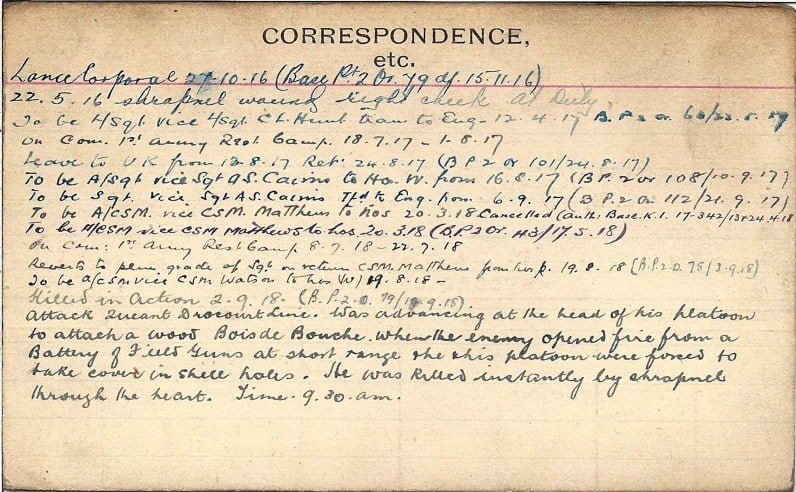 CORRESPONDENCE,
etc.
Lance Corporal 27-10-16 (Base Pt. 2 Or. 79 df. 15-11-16)
22. 5. 16 shrapnel wound right cheek At Duty
To be L/Sgt vice L/Sgt C.L. Hunt tran to Eng- 12. 4. 17 B.P.2 or 60/22.5.17
On Com. 1st Army Rest Camp. 18.7.17 - 1-8.17
Leave to U K from 13-8.17 Ret. 24.8.17 (B P 2 or 101/24.8.17)
To be A/Sgt vice Sgt A.S. Cairns to Ho. W. from 16.8.17 (B P. 2 or 108/10.9.17)
To be Sgt. vice Sgt A.S. Cairns Tfd to Eng. from 6.9.17 (B P.2 Or 112/21.9.17)
To be A/CSM. vice CSM. Matthews to hos 20.3.18 Cancelled (Auth: Base. K.1. 17-342/13+24.4.18
To be A/CSM vice CSM Matthews to hos. 20.3.18 (B.P.2 Or. 43/17.5.18)
On Com: 1st Army Rest Camp 8.7.18 - 22.7.18
Reverts to perm. grade of Sgt. on return CSM. Matthews from hosp. 19.8.18 (B.P.2.O. 75/3.9.18)
To be a/CSM vice CSM Watson to hos (W) 19.8.18 -
Killed in Action 2.9.18. (B.P.2.O. 79/10.9.18).
Attack Queant Drocourt Line. Was advancing at the head of his platoon
to attach a wood Bois de Bouche. When the enemy opened fire from a
Battery of Field Guns at short range he & his platoon were forced to
take cover in shell holes. He was killed instantly by shrapnel
through the heart. Time. 9.30. am.